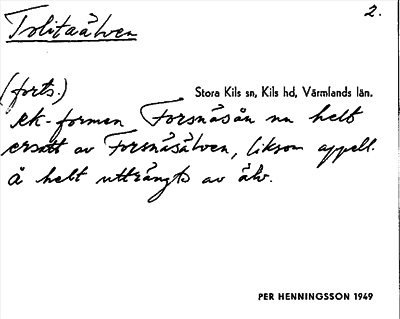 Tolitaälven
2.
(forts.)
Stora Kils sn, Kils hd, Värmlands län.
ek-formen Forsnäsån nu helt
ersatt av Forsnäsälven, liksom appell.
å helt utträngts av älv.
PER HENNINGSSON 1949